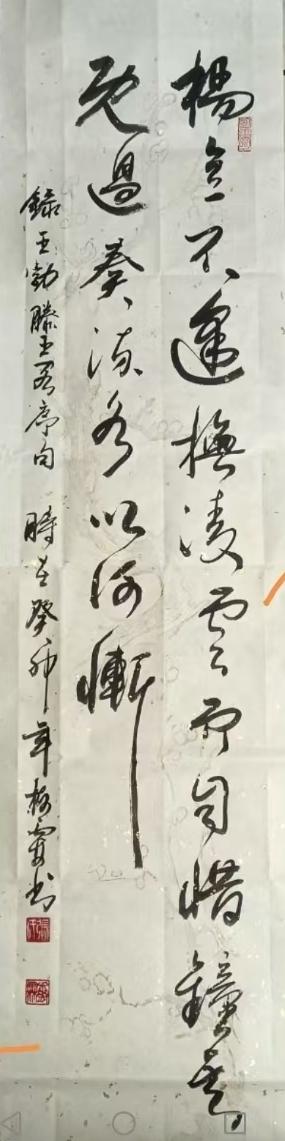 楊意不逢撫凌雲而自惜鐘意
既過奏流水以何慚
錄王勃滕王閣序句 時在癸卯年 書